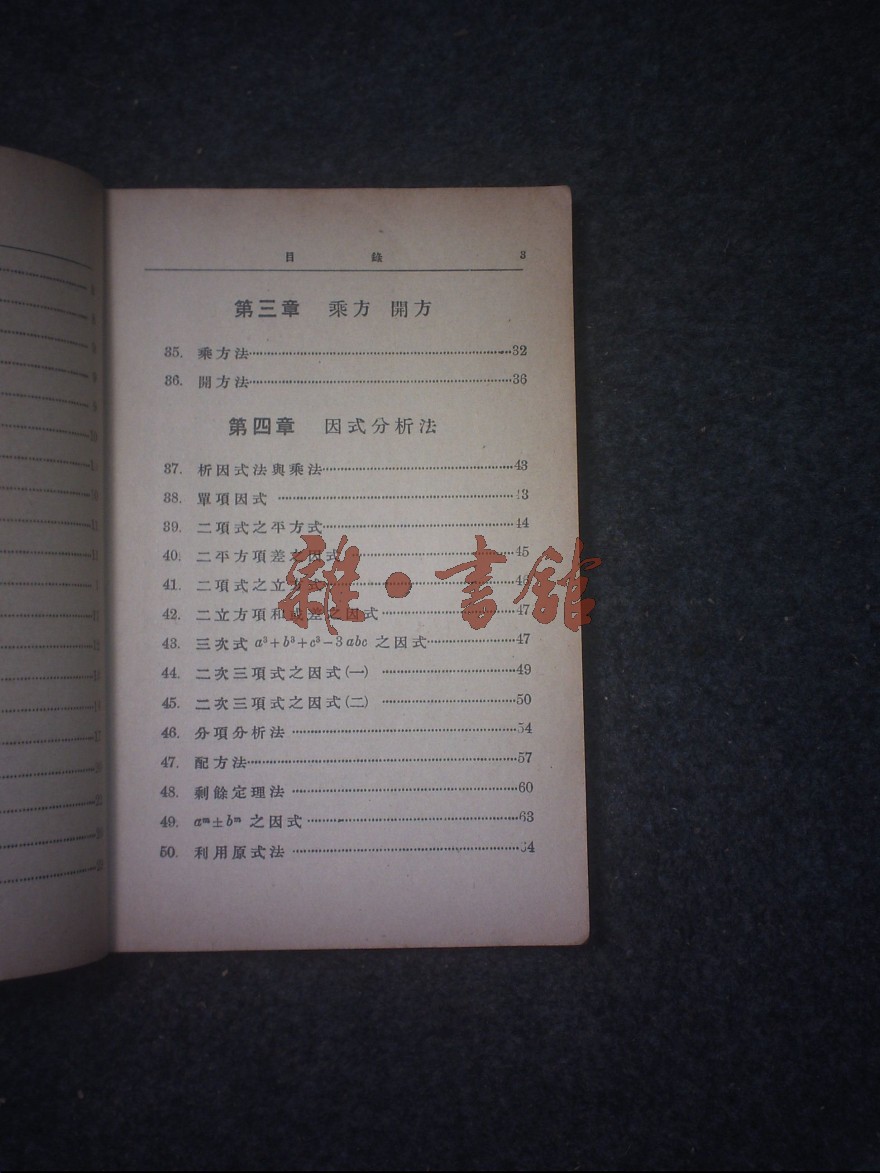 目 錄 3
第三章 乘方 開方
35. 乘方法 32
36. 開方法 36
第四章 因式分析法
37. 析因式法與乘法 43
38. 單項因式 43
39. 二項式之平方式 44
40. 二平方項差之因式 45
41. 二項式之立方式 46
42. 二立方項和或差之因式 47
43. 三次式 a³+b³+c³−3abc 之因式 47
44. 二次三項式之因式(一) 49
45. 二次三項式之因式(二) 50
46. 分項分析法 54
47. 配方法 57
48. 剩餘定理法 60
49. aᵐ±bᵐ 之因式 63
50. 利用原式法
雜·書館